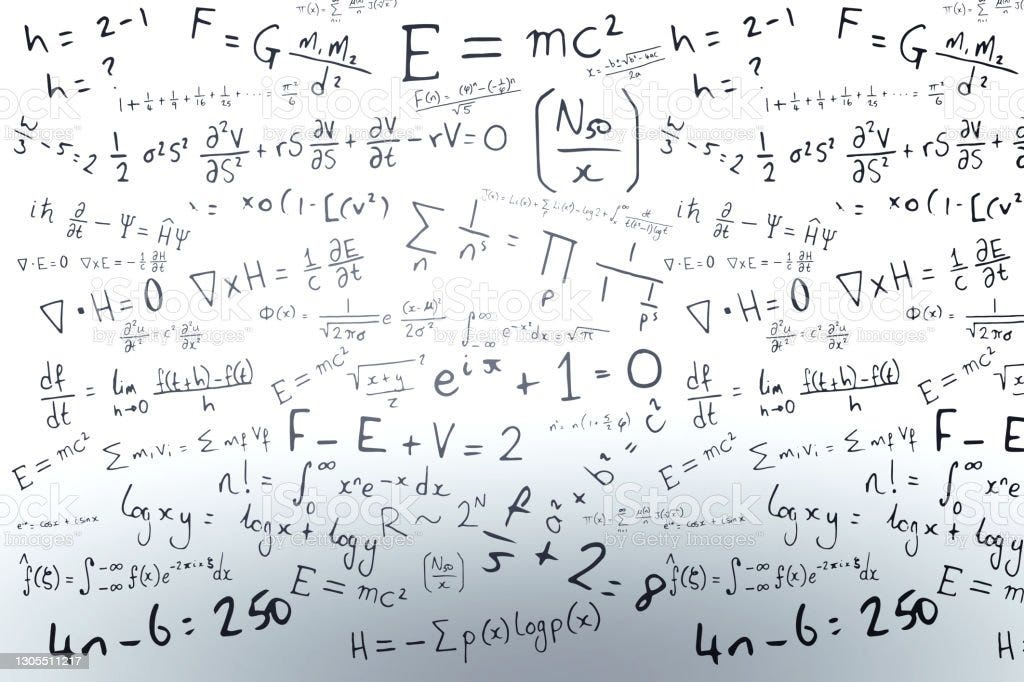 h = 2-1 F = G m₁m₂/d² E = mc² π(x) = Σ μ(n)/n J(ⁿ√x) h = 2-1 F = G m₁m₂/d²
h = ? x = -b±√b²-4ac/2a h = ?
1+1/4+1/9+1/16+1/25+....=π²/6 F(n) = (φ)ⁿ-(-1/φ)ⁿ/√5 (N₅₀/x) 1+1/4+1/9+1/16+1/25+....=π²/6
h/3 -5=2 1/2 σ²S² ∂²V/∂S² + rS ∂V/∂S + ∂V/∂t - rV = 0 h/3 -5=2 1/2 σ²S² ∂²V/∂S² + rS ∂V/∂S +
iħ ∂/∂t - Ψ = ĤΨ xo(1-[(v²) Σₙ 1/nˢ = Πₚ 1/1 1/pˢ iħ ∂/∂t - Ψ = ĤΨ xo(1-[(v²
∇·E=0 ∇xE=-1/c ∂H/∂t ∇xH = 1/c ∂E/∂t ∇·E=0 ∇xE=-1/c ∂H/∂t ∇xH = 1/c ∂E/∂t
∇·H = 0 Φ(x) = 1/√2πσ e (x-μ)²/2σ² ∫ e^-x² dx = √π ∇·H = 0 Φ(x) = 1/√2πσ
∂²u/∂t² = c² ∂²u/∂x² ∂²u/∂t² = c² ∂²u/∂x²
df/dt = lim h→0 f(t+h)-f(t)/h E = mc² √x+y/z ² e^ix + 1 = 0 df/dt = lim h→0 f(t+h)-f(t)/h E = mc²
E = mc² Σ mᵢvᵢ = Σ mf Vf F - E + V = 2 a² + b² = c² E = mc² Σ mᵢvᵢ = Σ mf Vf F - E
n! = ∫₀^∞ xⁿe^-x dx n! = ∫₀^∞ xⁿe
eⁱˣ = cosx + isinx logxy = logx + logy R ~ 2ᴺ π(x) = Σ μ(n)/n J(ⁿ√x) eⁱˣ = cosx + isinx logxy = logx + logy
f̂(ξ) = ∫ f(x)e^-2πixξ dx E = mc² (N₅₀/x) f/5 + 2 = 8 f̂(ξ) = ∫ f(x)e^-2πixξ dx E = m
4n-6 = 250 H = -Σp(x)logp(x) 4n-6 = 250 H =
iStock
Credit: Getty Images
by Getty Images™
1305511217